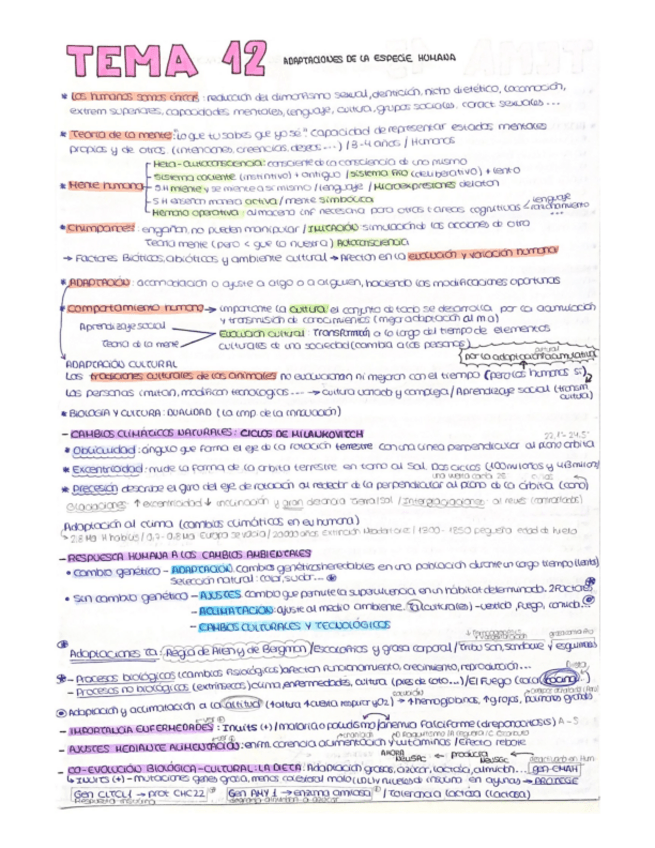 TEMA 12 ADAPTACIONES DE LA ESPECIE HUMANA
* Los humanos somos únicos: reducción del dimorfismo sexual, dentición, nicho dietético, locomoción,
extrem superiores, capacidades mentales, lenguaje, cultura, grupos sociales. caract sexuales ...
* Teoría de la mente: "lo que tu sabes que yo sé" capacidad de representar estados mentales
propios y de otros (intenciones, creencias, deseos ...) / 3-4 años / Humanos
* Mente humana
Meta-autoconsciencia: consciente de la consciencia de uno mismo
Sistema caliente (instintivo) + antiguo / sistema frío (deliberativo) + lento
SH miente y se miente a sí mismo / lenguaje / Microexpresiones delatan
SH enseñan manera activa / mente simbólica
Memoria operativa: almacena inf necesaria para otras tareas cognitivas < lenguaje
razonamiento
...
* Chimpancés: engañan, no pueden manipular / IMITACIÓN: simulación de las acciones de otro
Teoría mente (pero < que la nuestra) Autoconsciencia
→ Factores Bióticos, abióticos y ambiente cultural → Afectan en la evolución y variación humana
* ADAPTACIÓN: acomodación o ajuste a algo o a alguien, haciendo las modificaciones oportunas
* Comportamiento humano → importante la cultura: el conjunto de todo se desarrolla por la acumulación
y transmisión de conocimientos (mejor adaptación al m.a)
Aprendizaje social
Teoría de la mente
Evolución cultural: Transforman a lo largo del tiempo de elementos
culturales de una sociedad (cambia a las personas)
por la adaptación acumulativa
cultural
ADAPTACIÓN CULTURAL
Las tradiciones culturales de los animales no evolucionan ni mejoran con el tiempo (pero los humanos sí)
Las personas imitan, modifican tecnologías ... → cultura variada y compleja / Aprendizaje social (transm
cultural)
* BIOLOGÍA Y CULTURA: DUALIDAD (la imp de la innovación)
- CAMBIOS CLIMÁTICOS NATURALES: CICLOS DE MILANKOVITCH
22,1º-24,5º
* Oblicuidad: ángulo que forma el eje de la rotación terrestre con una línea perpendicular al plano órbita
* Excentricidad: mide la forma de la órbita terrestre en torno al Sol. Dos ciclos (100mil años y 413mil años)
* Precesión: describe el giro del eje de rotación al rededor de la perpendicular al plano de la órbita (cono)
Glaciaciones: ↑ excentricidad ↓ inclinación y gran distancia Tierra/Sol / Interglaciaciones: al revés
Adaptación al clima (cambios climáticos en ev humana)
- RESPUESTA HUMANA A LOS CAMBIOS AMBIENTALES
* Cambio genético - ADAPTACIÓN: cambios genéticos heredables en una población durante un largo tiempo (lenta)
Selección natural: calor, sudor...
* Sin cambio genético - AJUSTES: cambio que permite la supervivencia en un hábitat determinado. 2 Factores
- ACLIMATACIÓN: ajuste al medio ambiente. - vestido, fuego, comida..
- CAMBIOS CULTURALES Y TECNOLÓGICOS
Adaptaciones Tª: Regla de Allen y de Bergman / Escalofríos y grasa corporal / Tribu San, sombure y esquimales
- Procesos biológicos (cambios fisiológicos) afectan funcionamiento, crecimiento, reproducción...
- Procesos no biológicos (extrínsecos) clima, enfermedades, cultura (pies de loto...) / El Fuego
Adaptación y aclimatación a la altitud (↑altura ↑cuesta respirar y O2) → ↑hemoglobinas, ↑g.rojos, pulmones grandes
- IMPORTANCIA ENFERMEDADES: Inuits (+) / malaria o paludismo / anemia Falciforme (drepanocitosis) A-S
- AJUSTES MEDIANTE ALIMENTACIÓN: enfm. carencia alimentación y vitaminas / Efecto rebote
- CO-EVOLUCIÓN BIOLÓGICA-CULTURAL: LA DIETA: Adaptación grasas, azúcar, lactosa, almidón...
AHORA Neu5AC ← producía Neu5GC
gen CMAH
Gen CLTCL1 → prot CHC22
Gen AMY1 → enzima amilasa / Tolerancia lactosa (lactasa)